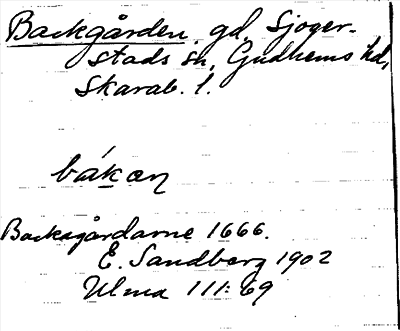 Backgården, gd, Sjoger-
stads sn, Gudhems hd,
Skarab. l.
båkæn
Backagårdarne 1666.
E. Sandberg 1902
Ulma 111:69